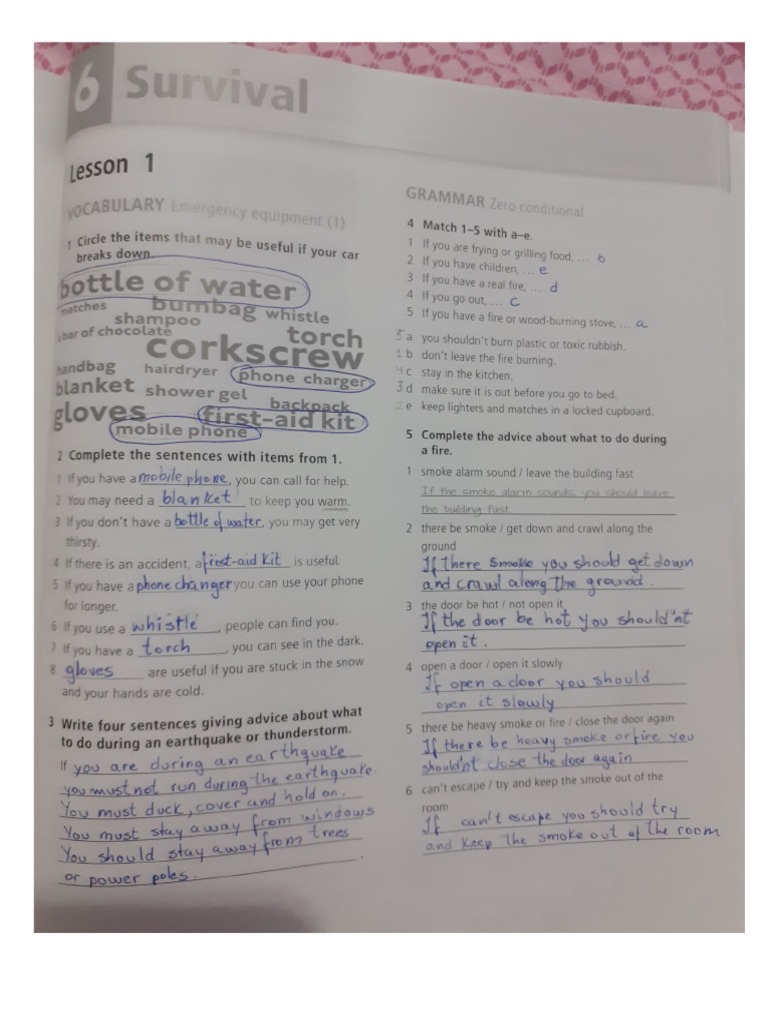 6 Survival
Lesson 1
VOCABULARY Emergency equipment (1)
1 Circle the items that may be useful if your car
breaks down.
bottle of water
matches bumbag whistle
shampoo
a bar of chocolate torch
corkscrew
handbag hairdryer phone charger
blanket shower gel
backpack
gloves first-aid kit
mobile phone
2 Complete the sentences with items from 1.
1 If you have a mobile phone, you can call for help.
2 You may need a blanket to keep you warm.
3 If you don't have a bottle of water, you may get very
thirsty.
4 If there is an accident, a frest-aid kit is useful.
5 If you have a phone changer you can use your phone
for longer.
6 If you use a whistle, people can find you.
7 If you have a torch, you can see in the dark.
8 gloves are useful if you are stuck in the snow
and your hands are cold.
3 Write four sentences giving advice about what
to do during an earthquake or thunderstorm.
If you are during an earthquake
you must not run during the earthquake.
You must duck, cover and hold on.
You must stay away from windows
You should stay away from trees
or power poles.
GRAMMAR Zero conditional
4 Match 1–5 with a–e.
1 If you are frying or grilling food, … b
2 If you have children, … e
3 If you have a real fire, … d
4 If you go out, … c
5 If you have a fire or wood-burning stove, … a
5 a you shouldn't burn plastic or toxic rubbish.
1 b don't leave the fire burning.
4 c stay in the kitchen.
3 d make sure it is out before you go to bed.
2 e keep lighters and matches in a locked cupboard.
5 Complete the advice about what to do during
a fire.
1 smoke alarm sound / leave the building fast
If the smoke alarm sounds, you should leave
the building fast
2 there be smoke / get down and crawl along the
ground
If there smoke you should get down
and crawl along the ground.
3 the door be hot / not open it
If the door be hot you should'nt
open it.
4 open a door / open it slowly
If open a door you should
open it slowly
5 there be heavy smoke or fire / close the door again
If there be heavy smoke or fire you
should'nt close the door again
6 can't escape / try and keep the smoke out of the
room
If can't escape you should try
and keep the smoke out of the room